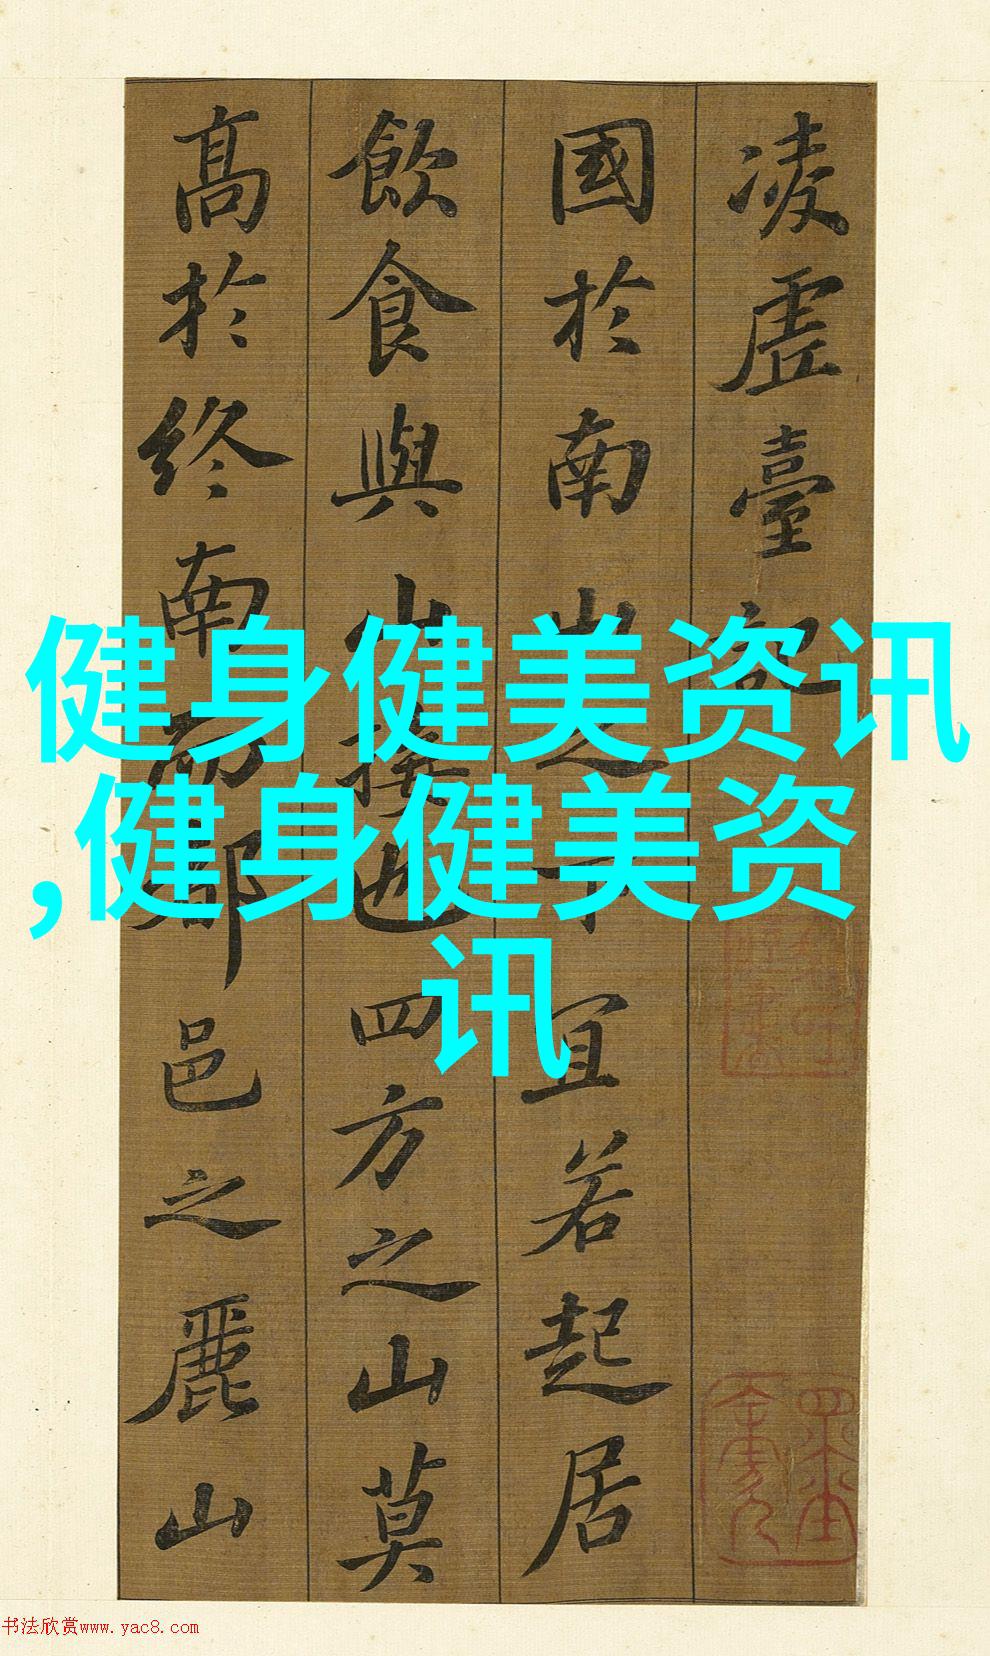 凌虚臺記
國於南山之下宜若起居
飲食與山接也四方之山莫
高於終南而都邑之麗山
健身健美资讯
,健身健美资
讯
书法欣赏www.yac8.com